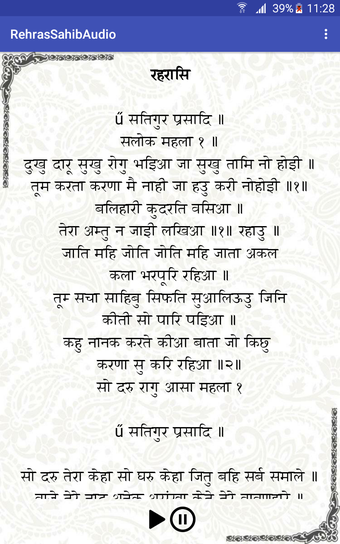 39% 11:28
RehrasSahibAudio
रहरासि
ੴ सतिगुर प्रसादि ॥
सलोक महला १ ॥
दुखु दारू सुखु रोगु भइिआ जा सुखु तामि नो होइी ॥
तूम करता करणा मै नाही जा हउ करी नोहोइी ॥१॥
बलिहारी कुदरति वसिआ ॥
तेरा अम्तु न जाइी लखिआ ॥१॥ रहाउ ॥
जाति महि जोति जोति महि जाता अकल
कला भरपूरि रहिआ ॥
तूम सचा साहिबु सिफति सुआलिऊउ जिनि
कीती सो पारि पइिआ ॥
कहु नानक करते कीआ बाता जो किछु
करणा सु करि रहिआ ॥२॥
सो दरु रागु आसा महला १
ੴ सतिगुर प्रसादि ॥
सो दरु तेरा केहा सो घरु केहा जितु बहि सर्ब समाले ॥